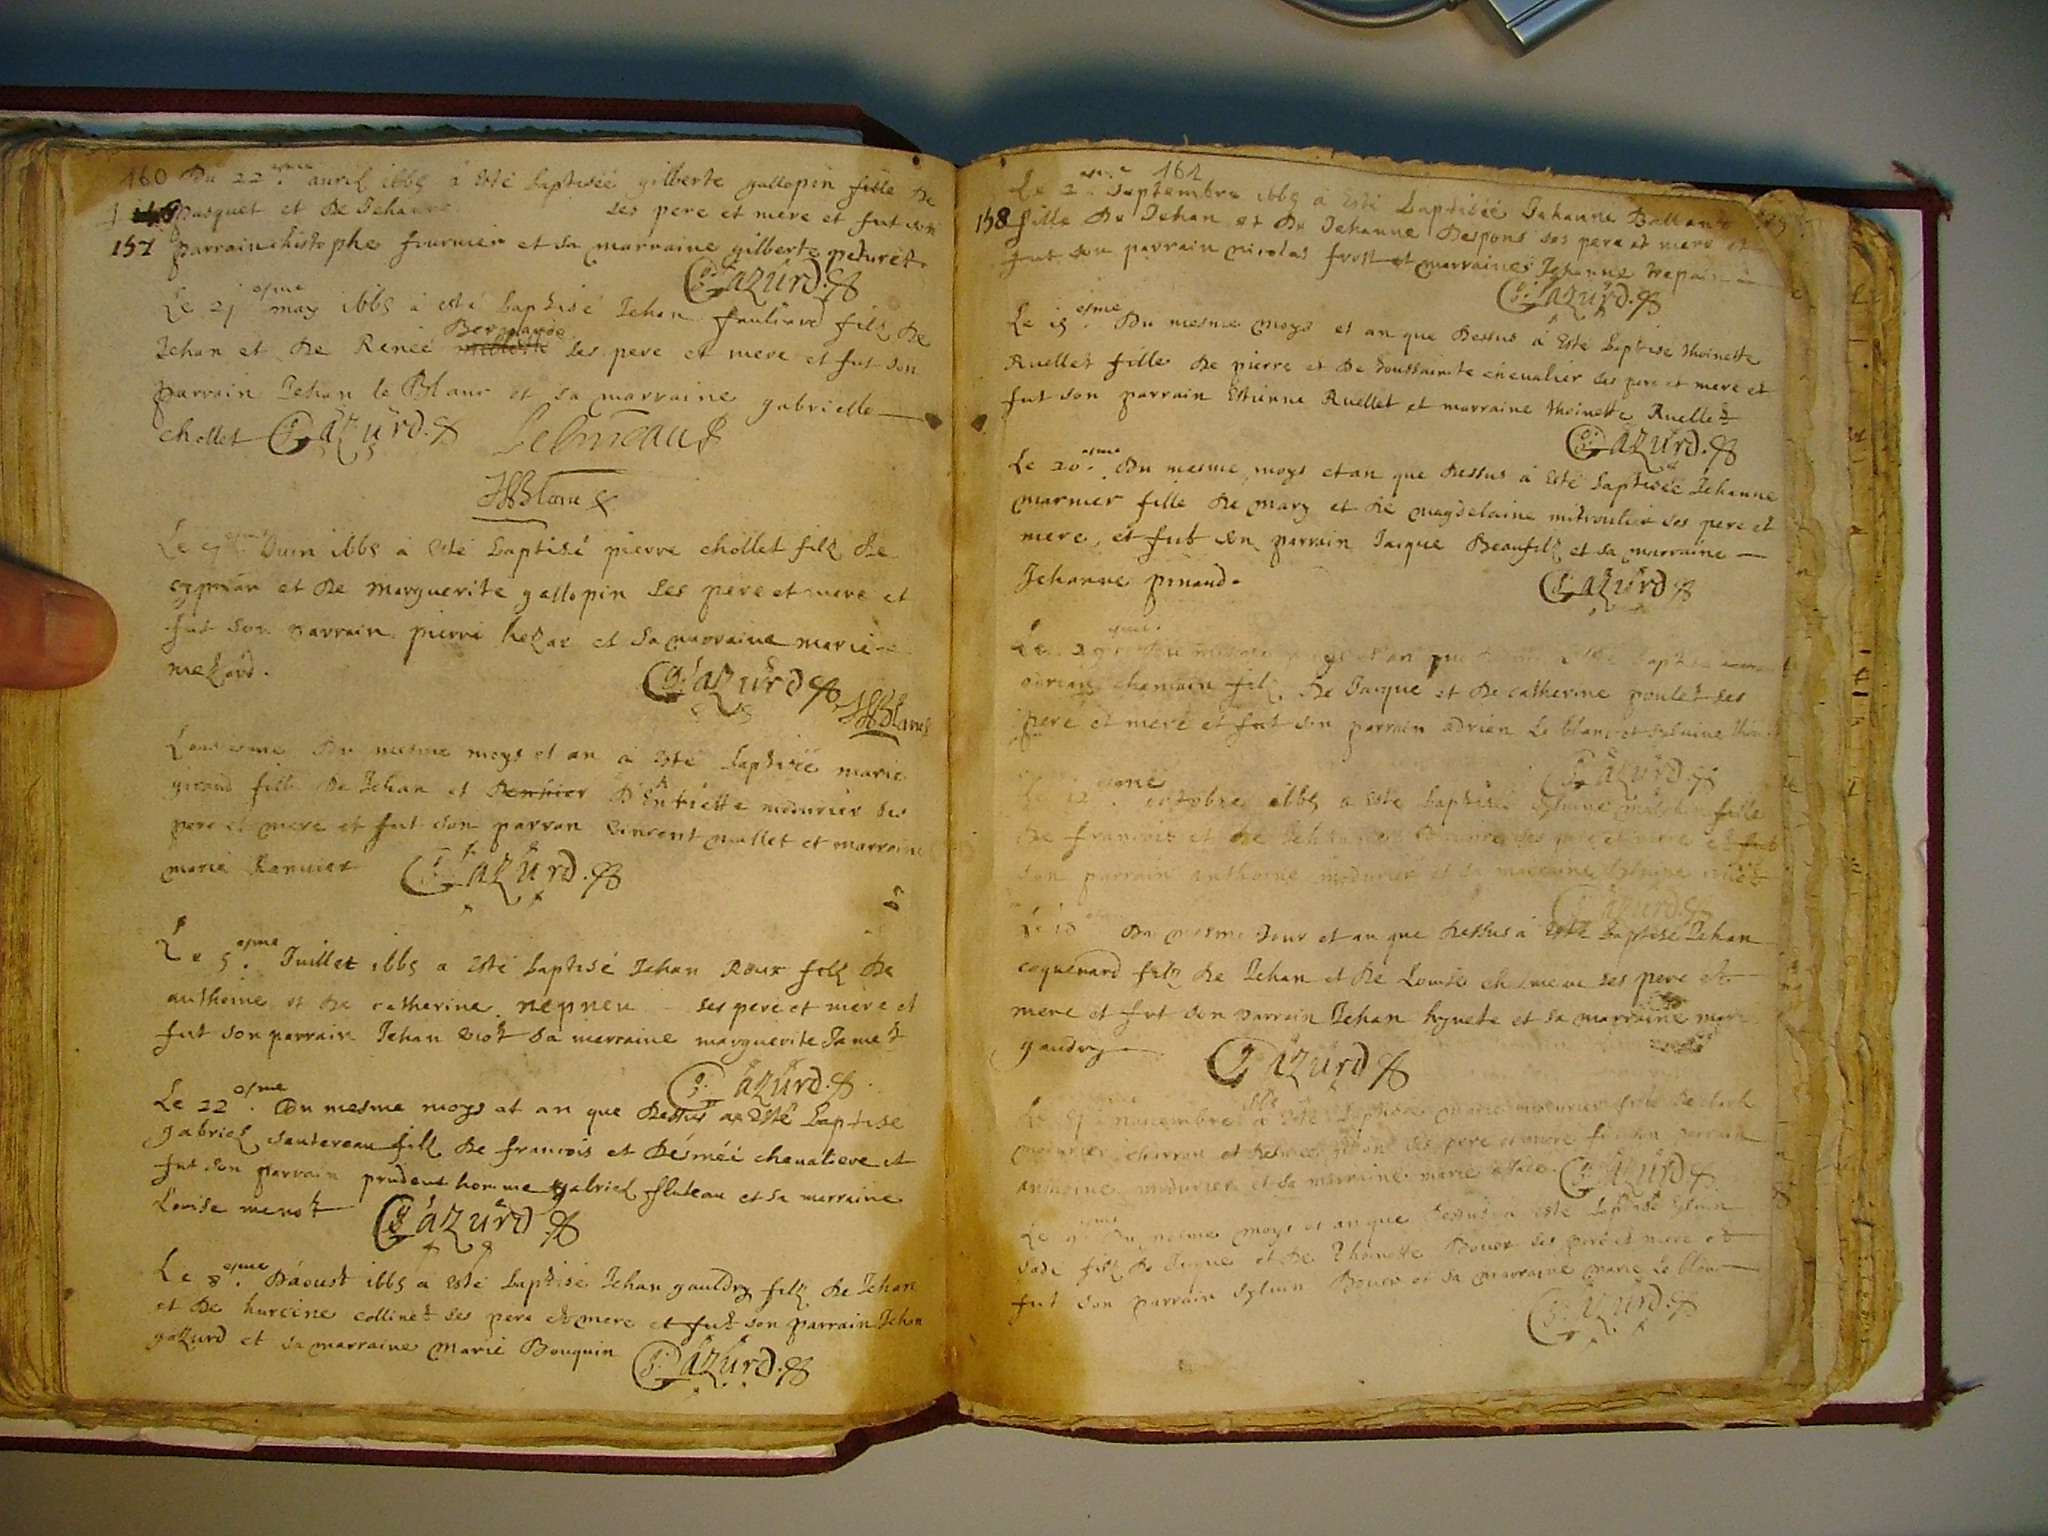 160 Du 22 esme. auril 1665 a esté baptiséé gilberte gallopin fille de
pasquet et de Jehanne ses pere et mere et fut son
157 parrain christophe fournier et sa marraine gilberte peturet.
G. äzürd.
Le 21 esme may 1665 a esté baptisé Jehan fauliard filz de
Jehan et de Renéé Bernarde ses pere et mere et fut son
parrain Jehan le Blanc et sa marraine gabrielle
chollet G. äzürd.
HBlanc
Le esme Juin 1665 a esté baptisé pierre chollet filz de
cyprian et de marguerite gallopin ses pere et mere et
fut son parrain pierre et sa marraine marie
mezard.
G. äzürd HBlanc
Le esme du mesme moys et an a esté baptiséé marie
giraud fille de Jehan et Denriette modurier ses
pere et mere et fut son parran vincent mallet et marraine
marie
G. äzürd.
Le 5 esme. Juillet 1665 a esté baptisé Jehan Roux filz de
anthoine et de catherine nepneu ses pere et mere et
fut son parrain Jehan viot sa marraine marguerite Jamet
G. äzürd.
Le 22 esme. Du mesme moys et an que dessus a esté baptise
gabriel sautereau filz de francois et désméé chevaliere et
fut son parrain prudent homme gabriel fluteau et sa marraine
Louise menot
G. äzürd
Le 8 esme. Dáoust 1665 a esté baptisé Jehan gauldry filz de Jehan
et de collinet ses pere et mere et fut son parrain Jehan
gazurd et sa marraine Marie Bouquin
G. äzürd.
161
Le 2 esme. Septembre 1665 a esté baptiséé Jehanne Ballant
158 fille de Jehan et de Jehanne Despons ses pere et mere et
fut son parrain nicolas frost et marraine Jehanne trepain
G. äzürd.
Le 15 esme. Du mesme moys et an que dessus a esté baptisé thoinette
Ruellet fille de pierre et de toussainte chevalier ses pere et mere et
fut son parrain Estienne Ruellet et marraine thoinette Ruellet
G. äzürd.
Le 20 esme. Du mesme moys et an que dessus a esté baptiséé Jehanne
marnier fille de mary et de magdelaine mitroulier ses pere et
mere, et fut son parrain Jacque Beaufilz et sa marraine
Jehanne pinaud.
G. äzürd
Le 29 esme. du mesme moys et an que dessus a esté baptisé
adrian chamain filz de Jacque et de catherine poulet ses
pere et mere et fut son parrain adrien Le blanc et sylvine
G. äzürd.
Le 12 esme. octobre 1665 a esté baptiséé sylvine fille
de francois et de Jehanne ses pere et mere et fut
son parrain anthoine modurier et sa marraine sylvine
G. äzürd.
Le 18 Du mesme Jour et an que dessus a esté baptisé Jehan
coquenard filz de Jehan et de Louise ses pere et
mere et fut son parrain Jehan et sa marraine marie
gaudry
G. äzürd
Le novembre 1665 a esté baptisée marie modurier fille de
modurier charron et ses pere et mere fut son parrain
anthoine modurier et sa marraine marie
G. äzürd
Le 9 esme Du mesme moys et an que dessus a esté baptisé sylvin
sade filz de Jacque et de thoinette Bouer ses pere et mere et
fut son parrain sylvin Bouer et sa marraine marie Le blanc
G. äzürd.